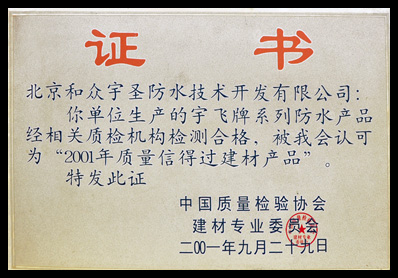 证 书
北京和众宇圣防水技术开发有限公司:
你单位生产的宇飞牌系列防水产品
经相关质检机构检测合格，被我会认可
为“2001年质量信得过建材产品”。
特发此证
中国质量检验协会
建材专业委员会
二00一年九月二十九日